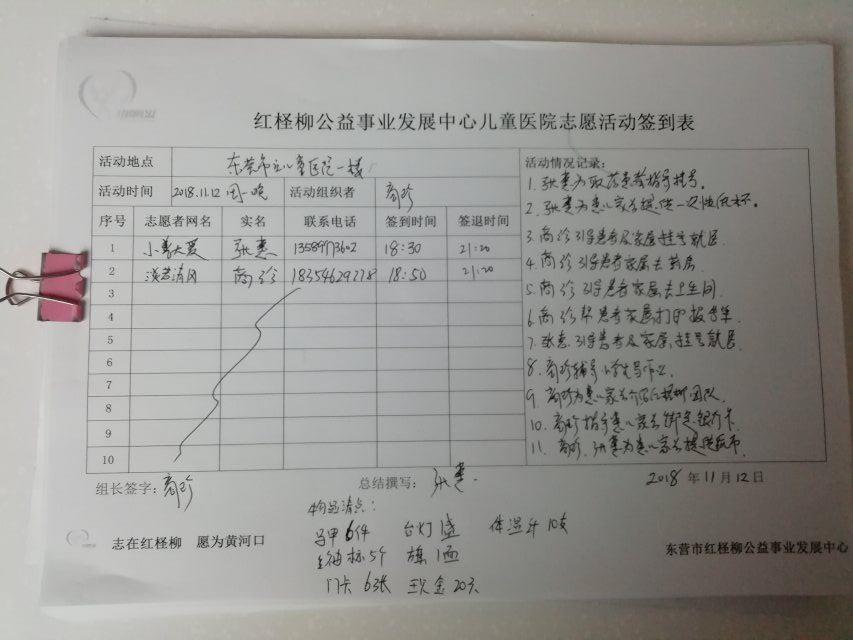 红柽柳公益事业发展中心儿童医院志愿活动签到表
活动地点 东营市立儿童医院一楼
活动时间 2018.11.12 周一晚 活动组织者 商珍
序号 志愿者网名 实名 联系电话 签到时间 签退时间
1 小善大爱 张惠 13589973602 18:30 21:20
2 淡若清风 商珍 18354629278 18:50 21:20
3
4
5
6
7
8
9
10
活动情况记录:
1. 张惠为取药患者指导挂号。
2. 张惠为患儿家长提供一次性纸杯。
3. 商珍引导患者及家属挂号就医
4. 商珍引导患者家属去药房
5. 商珍引导患者家属去卫生间
6. 商珍帮患者家属打印报告单
7. 张惠引导患者及家属挂号就医.
8. 商珍辅导小学生写作业
9. 商珍为患儿家长介绍红柽柳团队
10. 商珍指导患儿家长绑定银行卡
11. 商珍、张惠为患儿家长提供纸币
组长签字: 商珍 总结撰写: 张惠.
2018 年 11 月 12 日
物品清点:
马甲6件 台灯1盏 体温计10支
袖标5个 旗1面
门卡6张 现金20元
志在红柽柳 愿为黄河口
东营市红柽柳公益事业发展中心